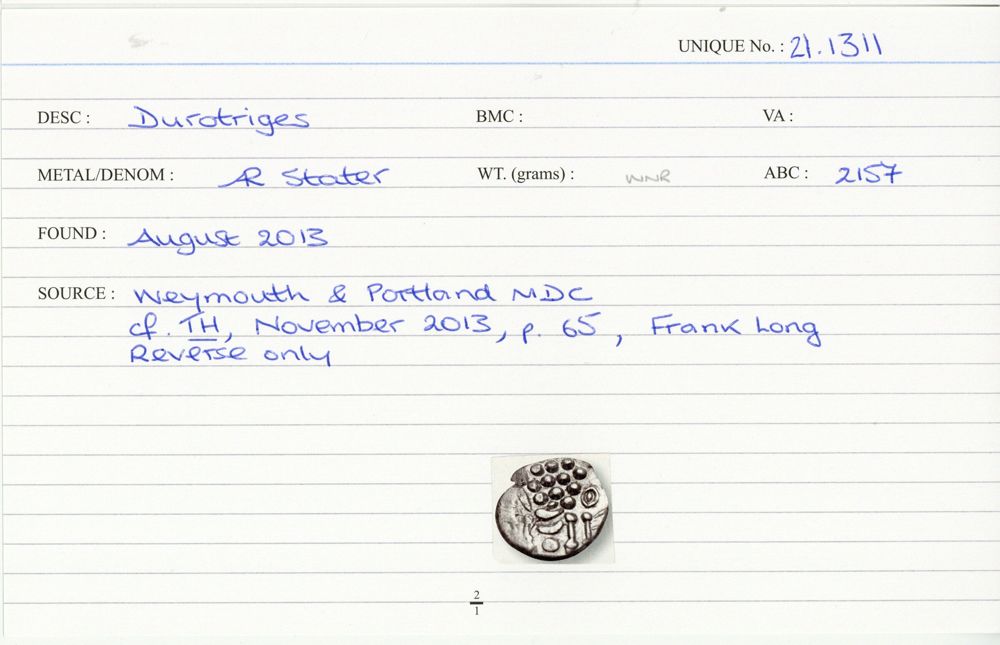 UNIQUE No. : 21.1311
DESC : Durotriges BMC : VA :
METAL/DENOM : AR Stater WT. (grams) : WNR ABC : 2157
FOUND : August 2013
SOURCE : Weymouth & Portland MDC
cf. TH, November 2013, p. 65, Frank Long
Reverse only
2
1